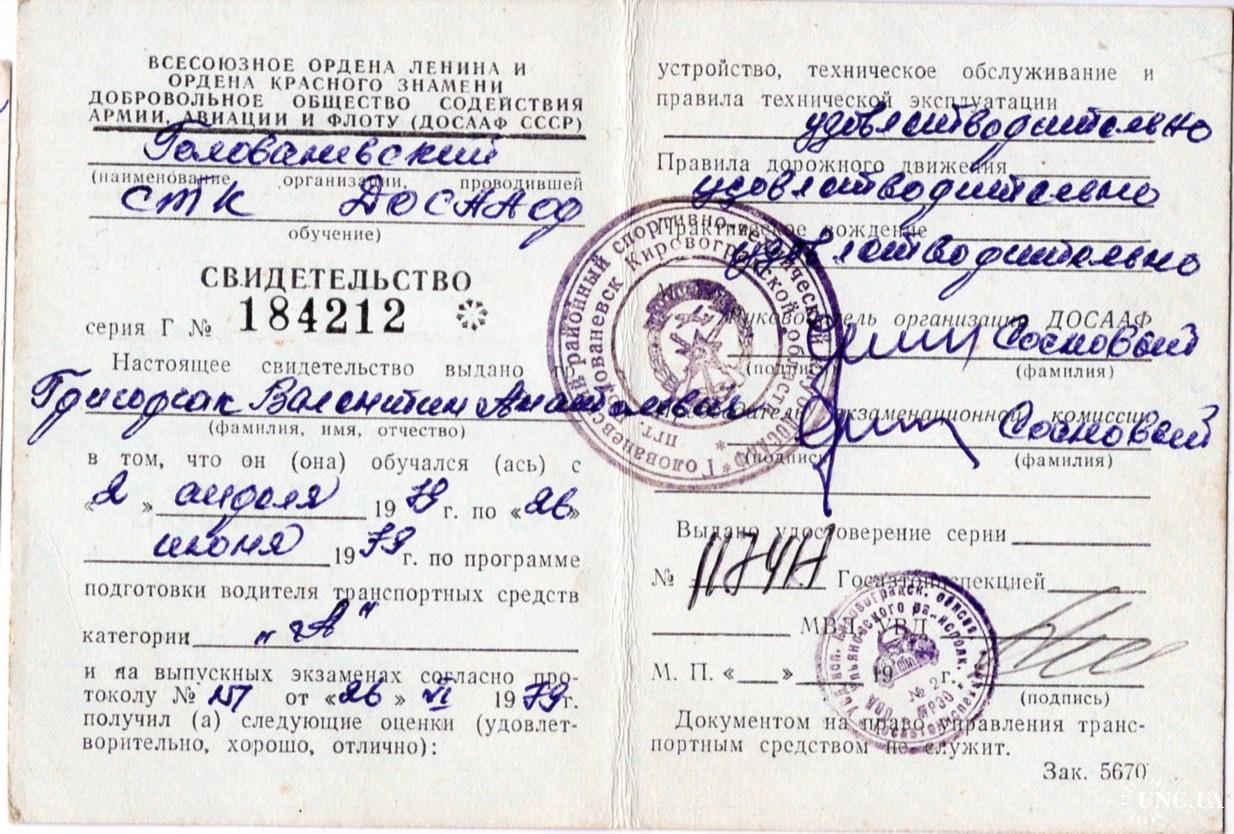 ВСЕСОЮЗНОЕ ОРДЕНА ЛЕНИНА И
ОРДЕНА КРАСНОГО ЗНАМЕНИ
ДОБРОВОЛЬНОЕ ОБЩЕСТВО СОДЕЙСТВИЯ
АРМИИ, АВИАЦИИ И ФЛОТУ (ДОСААФ СССР)
Голованевский
(наименование организации, проводившей
СТК ДОСААФ
обучение)
СВИДЕТЕЛЬСТВО
серия Г № 184212
Настоящее свидетельство выдано
Григорчак Валентин Анатольевич
(фамилия, имя, отчество)
в том, что он (она) обучался (ась) с
«2» апреля 1979 г. по «26»
июня 1979 г. по программе
подготовки водителя транспортных средств
категории „А"
и на выпускных экзаменах согласно про-
токолу № от «26» VI 1979 г.
получил (а) следующие оценки (удовлет-
ворительно, хорошо, отлично):
устройство, техническое обслуживание и
правила технической эксплуатации
удовлетворительно
Правила дорожного движения
удовлетворительно
Практическое вождение
удовлетворительно
Руководитель организации ДОСААФ
Сосновый
(подпись) (фамилия)
экзаменационной комиссии
Сосновый
(подпись) (фамилия)
Выдано удостоверение серии
№ Госавтоинспекцией
МВД, УВД
М. П. «__» 19 г.
(подпись)
Документом на право управления транс-
портным средством не служит.
Зак. 5670
UNC.UA